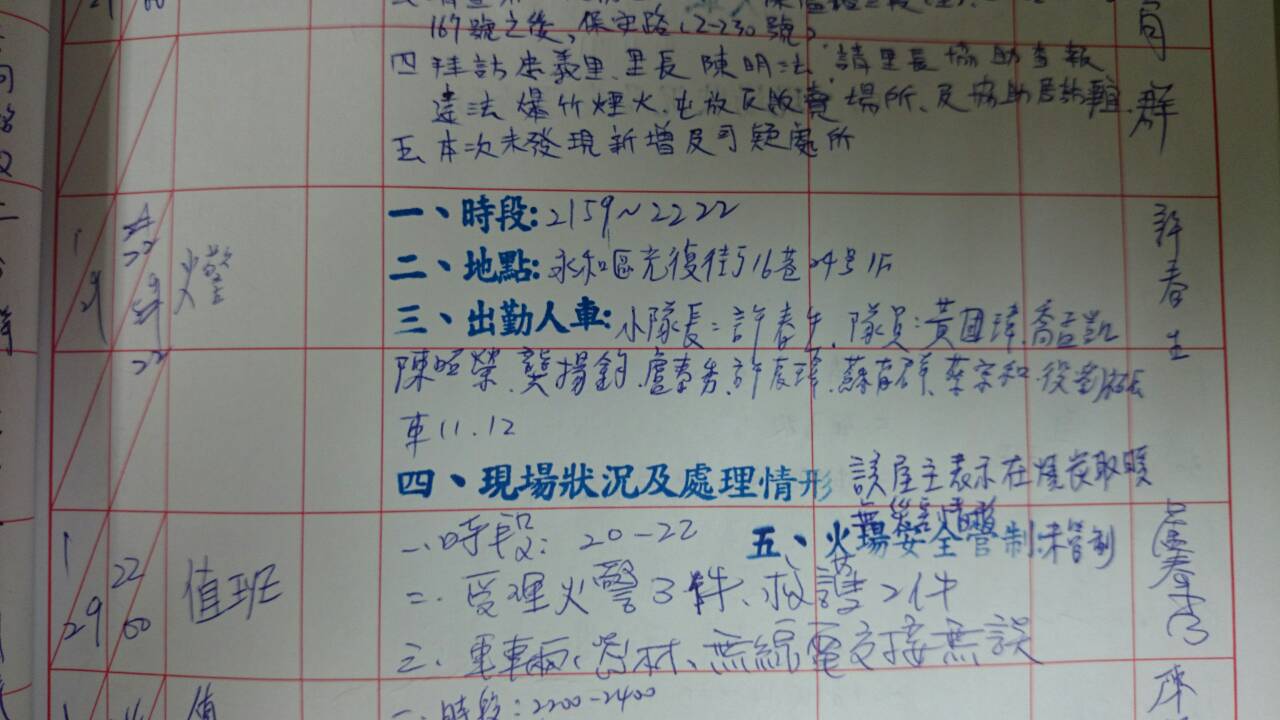 167號之後,保安路(2-230號)
四 拜訪忠義里里長陳明法 請里長協助查報
違法爆竹煙火屯放及販賣場所、及協助居訪輔.
五、本次未發現新增及可疑處所
群
1
29
22
59
22
火警
一、時段:2159~2222
二、地點:永和區光復街516巷24号1F
三、出勤人車:小隊長:許春生.隊員:黃國瑋.喬孟凱
陳昭榮.龔揚鈞.盧春秀.許辰瑋.蘇育群.蔡宗和.役劉
車11.12
四、現場狀況及處理情形 該屋主表示在燒炭取暖
五、火場安全管制:未管制
許春生
1
29
22
00
值班
一、時段:20-22
二、受理火警3件、救護2件
三、車輛、器材、無線電交接無誤
盧春秀
1
值
一、時段:2200-2400
陳